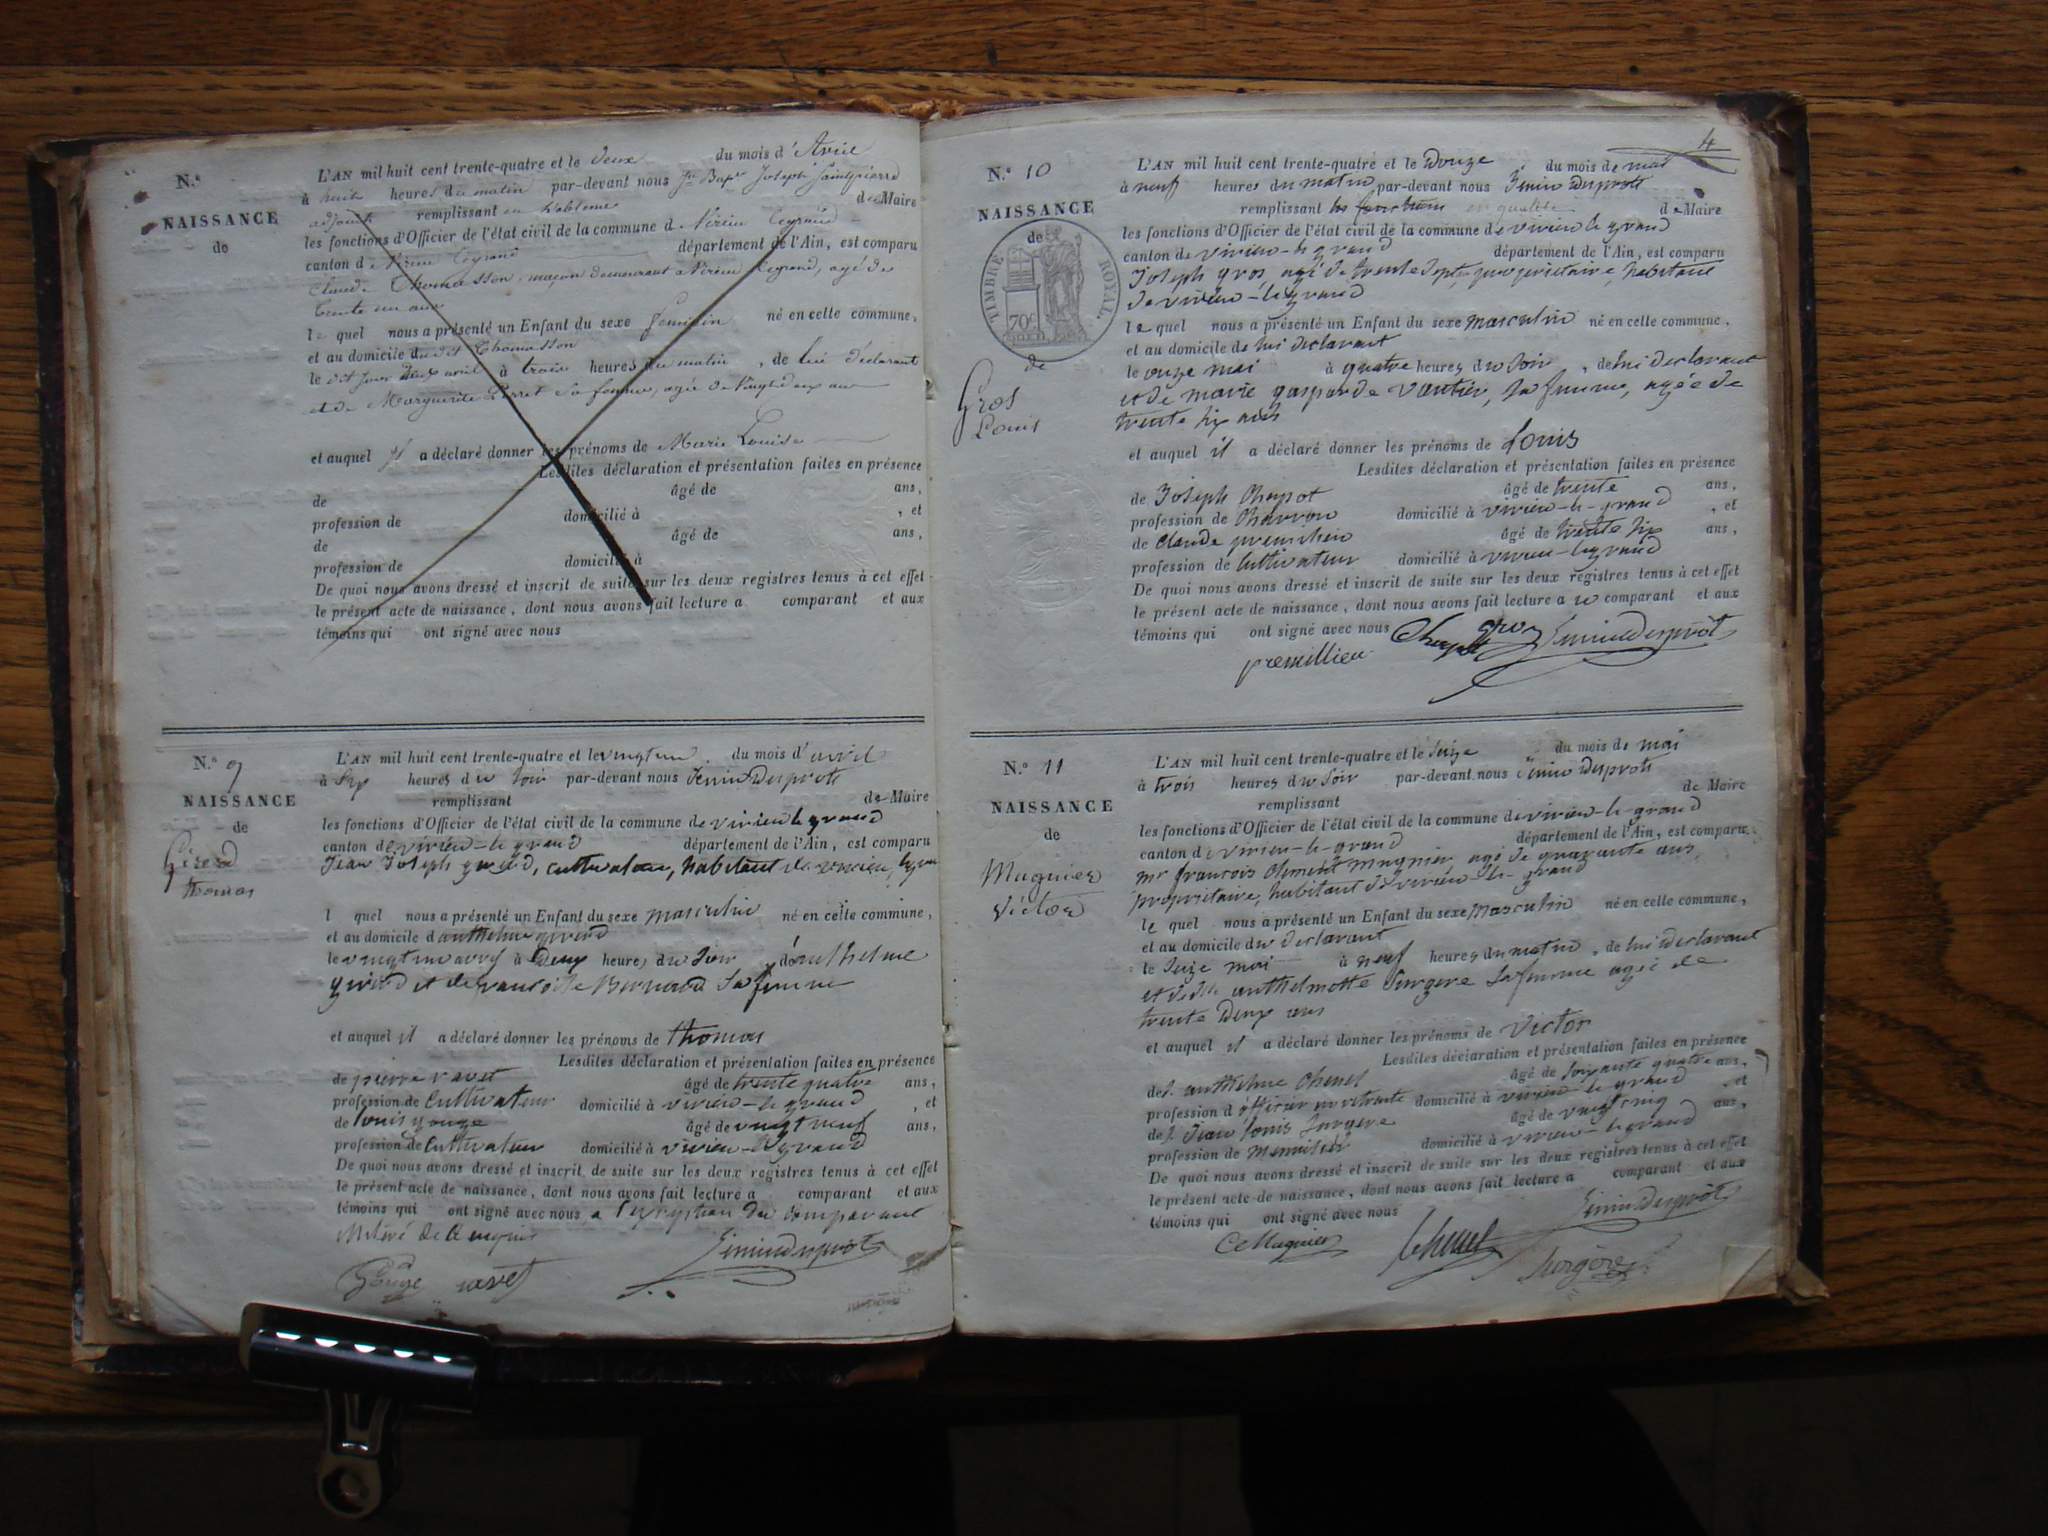 N.°
NAISSANCE
de
L'AN mil huit cent trente-quatre et le deux du mois d'Avril
à huit heures du matin par-devant nous Jn Bapt Joseph Saintpierre
adjoint remplissant en de Maire
les fonctions d'Officier de l'état civil de la commune de Virieu legrand
canton de Virieu legrand département de l'Ain, est comparu
Claude Thomasson, maçon demeurant a Virieu legrand, agé de
trente un ans
le quel nous a présenté un Enfant du sexe feminin né en cette commune,
et au domicile du dit Thomasson
le dit jour deux avril à trois heures du matin, de lui déclarant
et de Marguerite Perret sa femme, agée de vingt deux ans
et auquel il a déclaré donner les prénoms de Marie Louise
Lesdites déclaration et présentation faites en présence
de âgé de ans,
profession de domicilié à , et
de âgé de ans,
profession de domicilié à
De quoi nous avons dressé et inscrit de suite sur les deux registres tenus à cet effet
le présent acte de naissance, dont nous avons fait lecture a comparant et aux
témoins qui ont signé avec nous
N.° 9
NAISSANCE
de
Girerd
thomas
L'AN mil huit cent trente-quatre et le vingt un du mois d'avril
à six heures du soir par-devant nous Jenin Desprots
remplissant de Maire
les fonctions d'Officier de l'état civil de la commune de virieu le grand
canton de virieu-le grand département de l'Ain, est comparu
Jean Joseph girerd, cultivateur, habitant de virieu
l quel nous a présenté un Enfant du sexe masculin né en cette commune,
et au domicile d'anthelme girerd
le vingt un avril à deux heures du soir, d'anthelme
girerd et de francoise Bernard sa femme
et auquel il a déclaré donner les prénoms de thomas
Lesdites déclaration et présentation faites en présence
de pierre ravet âgé de trente quatre ans,
profession de Cultivateur domicilié à virieu-le grand , et
de Louis gouge âgé de vingt neuf ans,
profession de Cultivateur domicilié à virieu-le grand
De quoi nous avons dressé et inscrit de suite sur les deux registres tenus à cet effet
le présent acte de naissance, dont nous avons fait lecture a comparant et aux
témoins qui ont signé avec nous, a l'exception du comparant
illitéré de ce enquis
Jenin Desprôts
Gouge ravet
4
N.° 10
NAISSANCE
de
TIMBRE ROYAL.
70c
de
Gros
Louis
L'AN mil huit cent trente-quatre et le Douze du mois de mai
à neuf heures du matin par-devant nous Jenin Desprots
remplissant les fonctions en qualité de Maire
les fonctions d'Officier de l'état civil de la commune de virieu le grand
canton de virieu-le grand département de l'Ain, est comparu
Joseph gros, agé de trente sept, proprietaire, habitant
de virieu-le grand
le quel nous a présenté un Enfant du sexe masculin né en cette commune,
et au domicile de lui declarant
le onze mai à quatre heures du soir, de lui declarant
et de marie gasparde Vautier, sa femme, agée de
trente six ans
et auquel il a déclaré donner les prénoms de Louis
Lesdites déclaration et présentation faites en présence
de Joseph Cheynot âgé de trente ans,
profession de Charron domicilié à virieu-le-grand , et
de Claude premilieu âgé de trente six ans,
profession de Cultivateur domicilié à virieu-le grand
De quoi nous avons dressé et inscrit de suite sur les deux registres tenus à cet effet
le présent acte de naissance, dont nous avons fait lecture a u comparant et aux
témoins qui ont signé avec nous
gros Jenin Desprôts
premillieu
N.° 11
NAISSANCE
de
Mugnier
Victor
L'AN mil huit cent trente-quatre et le Seize du mois de mai
à trois heures du soir par-devant nous Jenin Desprots
remplissant de Maire
les fonctions d'Officier de l'état civil de la commune de virieu-le-grand
canton de virieu-le-grand département de l'Ain, est comparu
mr francois Clement mugnier, agé de quarante ans
proprietaire, habitant de virieu-le-grand
le quel nous a présenté un Enfant du sexe masculin né en cette commune,
et au domicile du declarant
le Seize mai à neuf heures du matin, de lui declarant
et de dlle anthelmette Surgere sa femme agée de
trente Deux ans
et auquel il a déclaré donner les prénoms de Victor
Lesdites déclaration et présentation faites en présence
de s. anthelme Chenel âgé de soixante quatre ans,
profession d'officier en retraite domicilié à virieu-le grand , et
de s. Jean Louis Surgere âgé de vingt cinq ans,
profession de menuisier domicilié à virieu-le grand
De quoi nous avons dressé et inscrit de suite sur les deux registres tenus à cet effet
le présent acte de naissance, dont nous avons fait lecture a comparant et aux
témoins qui ont signé avec nous
Jenin Desprôts
Ce Mugnier Chenel Surgere